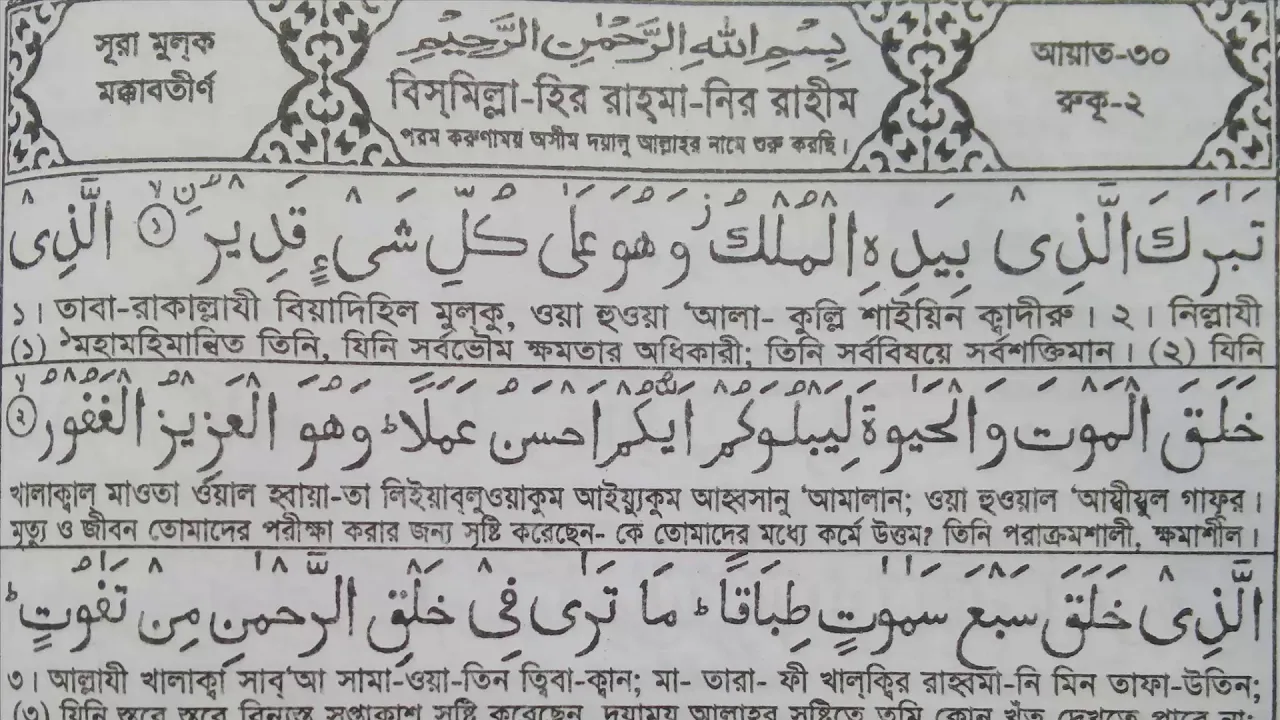 সূরা মুল্‌ক
মক্কাবতীর্ণ
بِسْمِ اللهِ الرَّحْمٰنِ الرَّحِيْمِ
বিস্‌মিল্লা-হির রাহ্‌মা-নির রাহীম
পরম করুণাময় অসীম দয়ালু আল্লাহর নামে শুরু করছি।
আয়াত-৩০
রুকূ-২
تَبٰرَكَ الَّذِىْ بِيَدِهِ الْمُلْكُ ز وَهُوَ عَلٰى كُلِّ شَىْءٍ قَدِيْرُ ۨ ① الَّذِىْ
১। তাবা-রাকাল্লাযী বিয়াদিহিল মুল্‌কু, ওয়া হুওয়া ‘আলা- কুল্লি শাইয়িন ক্বাদীরু। ২। নিল্লাযী
(১) মহামহিমান্বিত তিনি, যিনি সর্বভৌম ক্ষমতার অধিকারী; তিনি সর্ববিষয়ে সর্বশক্তিমান। (২) যিনি
خَلَقَ الْمَوْتَ وَالْحَيٰوةَ لِيَبْلُوَكُمْ اَيُّكُمْ اَحْسَنُ عَمَلًا ؕ وَهُوَ الْعَزِيْزُ الْغَفُوْرُ ②
খালাক্বাল্ মাওতা ওয়াল হ্বায়া-তা লিইয়াব্‌লুওয়াকুম আইয়্যুকুম আহ্বসানু ‘আমালান; ওয়া হুওয়াল ‘আযীযুল গাফূর।
মৃত্যু ও জীবন তোমাদের পরীক্ষা করার জন্য সৃষ্টি করেছেন- কে তোমাদের মধ্যে কর্মে উত্তম? তিনি পরাক্রমশালী, ক্ষমাশীল।
الَّذِىْ خَلَقَ سَبْعَ سَمٰوٰتٍ طِبَاقًا ؕ مَا تَرٰى فِىْ خَلْقِ الرَّحْمٰنِ مِنْ تَفٰوُتٍ ؕ
৩। আল্লাযী খালাক্বা সাব্‘আ সামা-ওয়া-তিন ত্বিবা-ক্বান; মা- তারা- ফী খাল্‌ক্বির রাহ্বমা-নি মিন তাফা-উতিন;
(৩) যিনি স্তরে স্তরে বিন্যস্ত সপ্তাকাশ সৃষ্টি করেছেন, দয়াময় আল্লাহর সৃষ্টিতে তুমি কোন খুঁত দেখতে পাবে না;